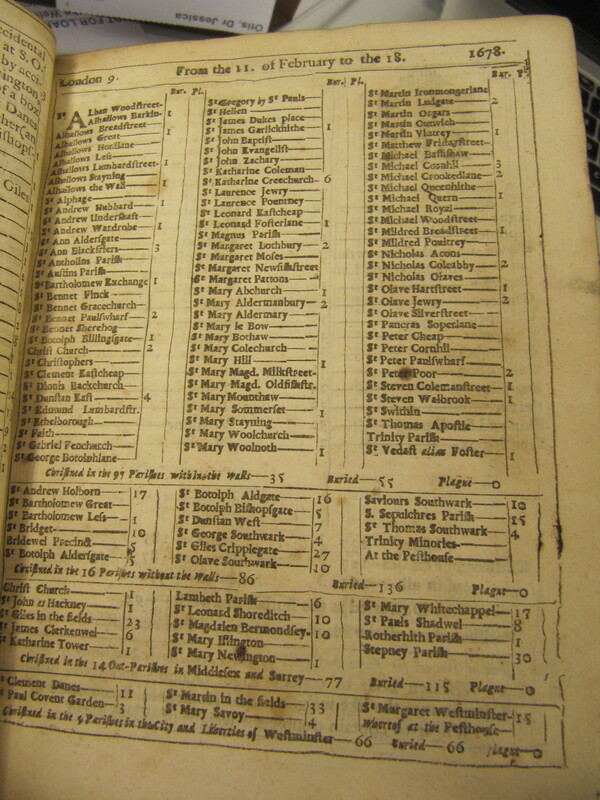 Otis, Dr Jessica
ccidental
at S. O.
by acci.
of a box
London 9. From the 11. of February to the 18. 1678.
Bur. Pl.
St Alban Woodstreet-
Alhallows Barkin- 1
Alhallows Breadstreet-
Alhallows Great- 1
Alhallows Honilane
Alhallows Less-
Alhallows Lumbardstreet- 1
Alhallows Stayning
Alhallows the Wall 1
St Alphage
St Andrew Hubbard 1
St Andrew Undershaft
St Andrew Wardrobe 1
St Ann Aldersgate
St Ann Blackfriers 3
St Antholins Parish
St Austins Parish
St Bartholomew Exchange 1
St Bennet Finck
St Bennet Gracechurch
St Bennet Paulswharf 2
St Bennet Sherehog
St Botolph Billingsgate 1
Christ Church 2
St Christophers
St Clement Eastcheap
St Dionis Backchurch
St Dunstan East 4
St Edmund Lumbardstr.
St Ethelborough
St Faith
St Gabriel Fenchurch
St George Botolphlane
Bur. Pl.
St Gregory by St Pauls
St Hellen
St James Dukes place
St James Garlickhithe 1
St John Baptist
St John Evangelist
St John Zachary
St Katharine Coleman
St Katharine Creechurch 6
St Laurence Jewry
St Laurence Pountney
St Leonard Eastcheap
St Leonard Fosterlane 1
St Magnus Parish
St Margaret Lothbury 2
St Margaret Moses
St Margaret Newfishstreet
St Margaret Pattons
St Mary Abchurch 1
St Mary Aldermanbury 2
St Mary Aldermary
St Mary le Bow
St Mary Bothaw
St Mary Colechurch
St Mary Hill 1
St Mary Magd. Milkstreet-
St Mary Magd. Oldfishstr.
St Mary Mounthaw
St Mary Sommerset 1
St Mary Stayning
St Mary Woolchurch
St Mary Woolnoth 1
Bur. P
St Martin Ironmongerlane
St Martin Ludgate 2
St Martin Orgars
St Martin Outwich
St Martin Vintrey 1
St Matthew Fridaystreet
St Michael Bassishaw
St Michael Cornhil 3
St Michael Crookedlane 2
St Michael Queenhithe
St Michael Quern 1
St Michael Royal
St Michael Woodstreet
St Mildred Breadstreet 1
St Mildred Poultrey
St Nicholas Acons
St Nicholas Coleabby 2
St Nicholas Olaves
St Olave Hartstreet 1
St Olave Jewry 2
St Olave Silverstreet
St Pancras Soperlane
St Peter Cheap
St Peter Cornhil
St Peter Paulswharf
St Peter Poor 2
St Steven Colemanstreet 1
St Steven Walbrook 1
St Swithin
St Thomas Apostle
Trinity Parish
St Vedast alias Foster 1
Christned in the 97 Parishes within the Walls 35 Buried 55 Plague 0
St Andrew Holborn 17
St Bartholomew Great
St Bartholomew Less 1
St Bridget 10
Bridewel Precinct
St Botolph Aldersgate 5
St Botolph Aldgate 16
St Botolph Bishopsgate 5
St Dunstan West 7
St George Southwark 4
St Giles Cripplegate 27
St Olave Southwark 10
Saviours Southwark 10
S. Sepulchres Parish 15
St Thomas Southwark 4
Trinity Minories
At the Pesthouse
Christned in the 16 Parishes without the Walls 86 Buried 136 Plague 0
Christ Church 1
St John at Hackney 1
St Giles in the fields 23
St James Clerkenwel 6
St Katharine Tower 1
Lambeth Parish 6
St Leonard Shoreditch 10
St Magdalen Bermondsey- 10
St Mary Islington
St Mary Newington 1
St Mary Whitechappel 17
St Pauls Shadwel 8
Rotherhith Parish 1
Stepney Parish 30
Christned in the 14 Out-Parishes in Middlesex and Surrey 77 Buried 115 Plague 0
Clement Danes 11
Paul Covent Garden 3
St Martin in the fields 33
St Mary Savoy 4
St Margaret Westminster 15
Whereof at the Pesthouse
Christned in the 5 Parishes in the City and Liberties of Westminster 66 Buried 66 Plague 0